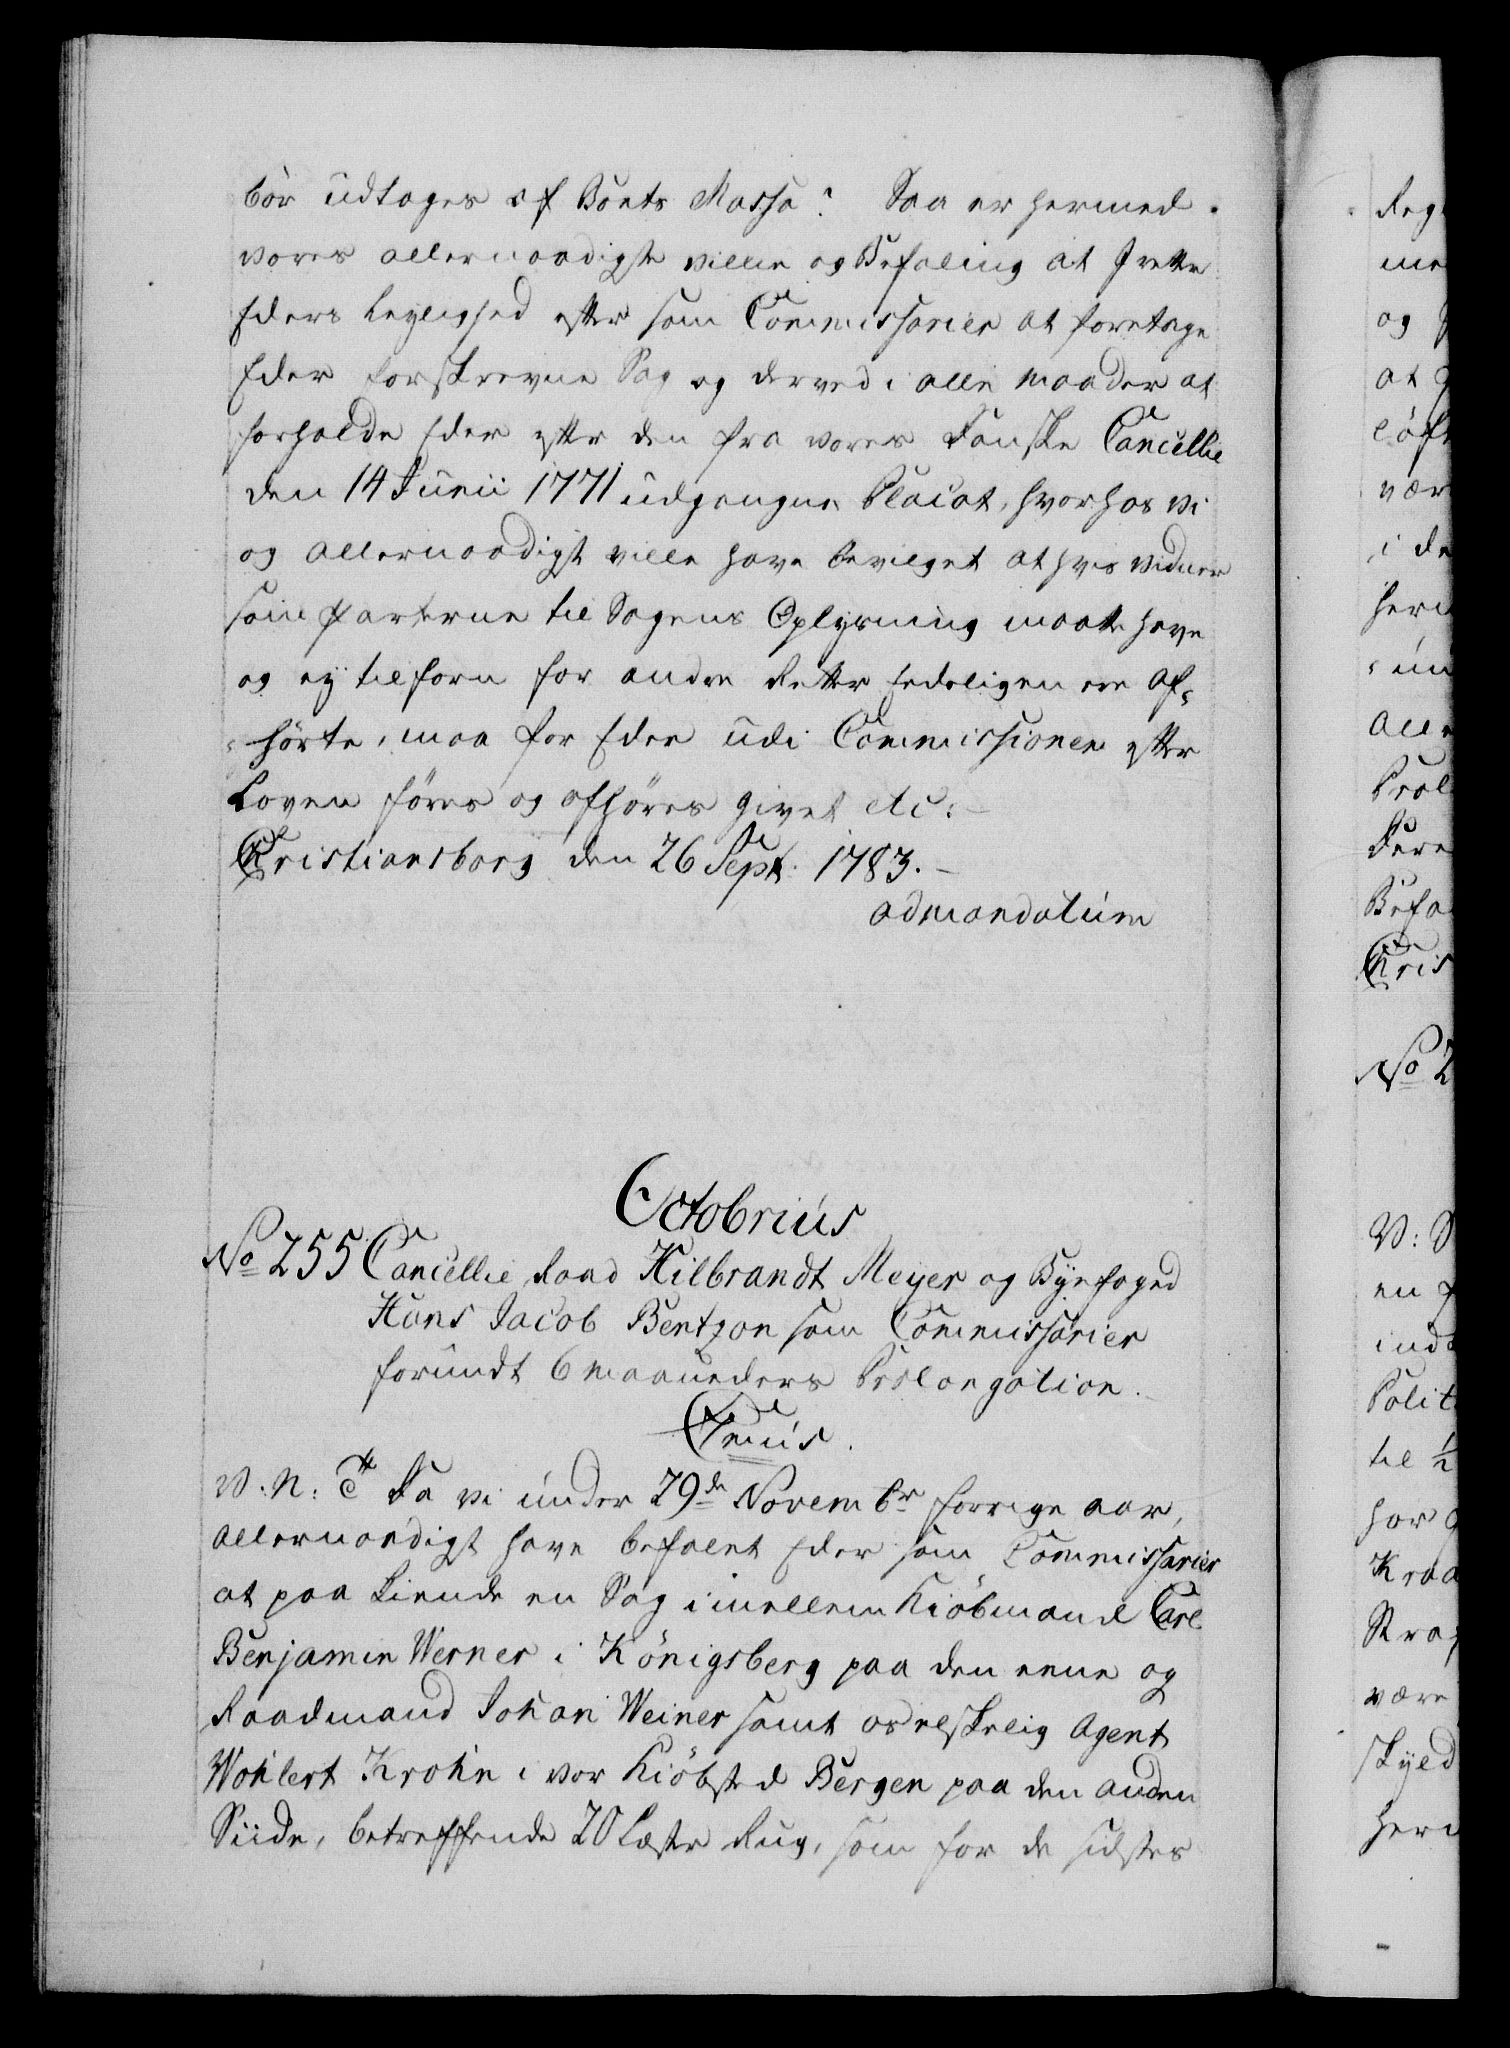 bör udtages af Boets Massa? Saa er hermed
vores allernaadigste villie og Befaling at I rette
Eders Leylighed efter som Commissarier at foretage
Eder forskrevne Sag og derved i alle maader at
forholde Eder efter den fra vores Danske Cancellie
den 14 Junii 1771 udgangne Placat, hvorhos vi
og allernaadigst ville have bevilget at hvis vidner
som parterne til Sagens Oplysning maatte have
og ej tilforn for andre Retter Eedeligen ere af-
-hörte, maa for Eder udi Commissionen efter
Loven föres og afhöres givet etc:
Christiansborg den 26 Sept: 1783.
admandatum
Octobrius
No 255 Cancellie Raad Hilbrandt Meyer og Byefoged
Hans Jacob Bentzon som Commissarier
forundt 6 maaneders Prolongation.
C7mus.
V: N: C Da vi under 29de Novembr forrige aar,
allernaadigst have befalet Eder som Commissarier
at paa kiende en Sag imellem Kiöbmand Carl
Benjamin Werner i Königsberg paa den eene og
Raadmand Johan Weiner samt adelskelig Agent
Wohlert Krohn i vor Kiöbsted Bergen paa den anden
Siide, betreffende 20 Læster Rug, som for de sidstes